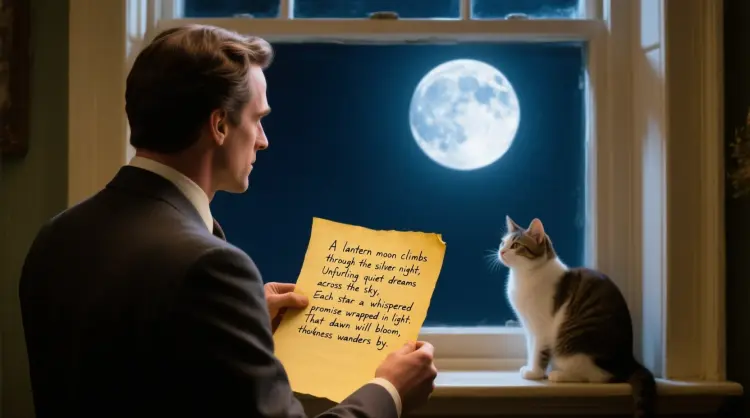 A lantern moon climbs
through the silver night,
Unfurling quiet dreams
across the sky,
Each star a whispered
promise wrapped in light.
That dawn will bloom,
thokness wanders by.